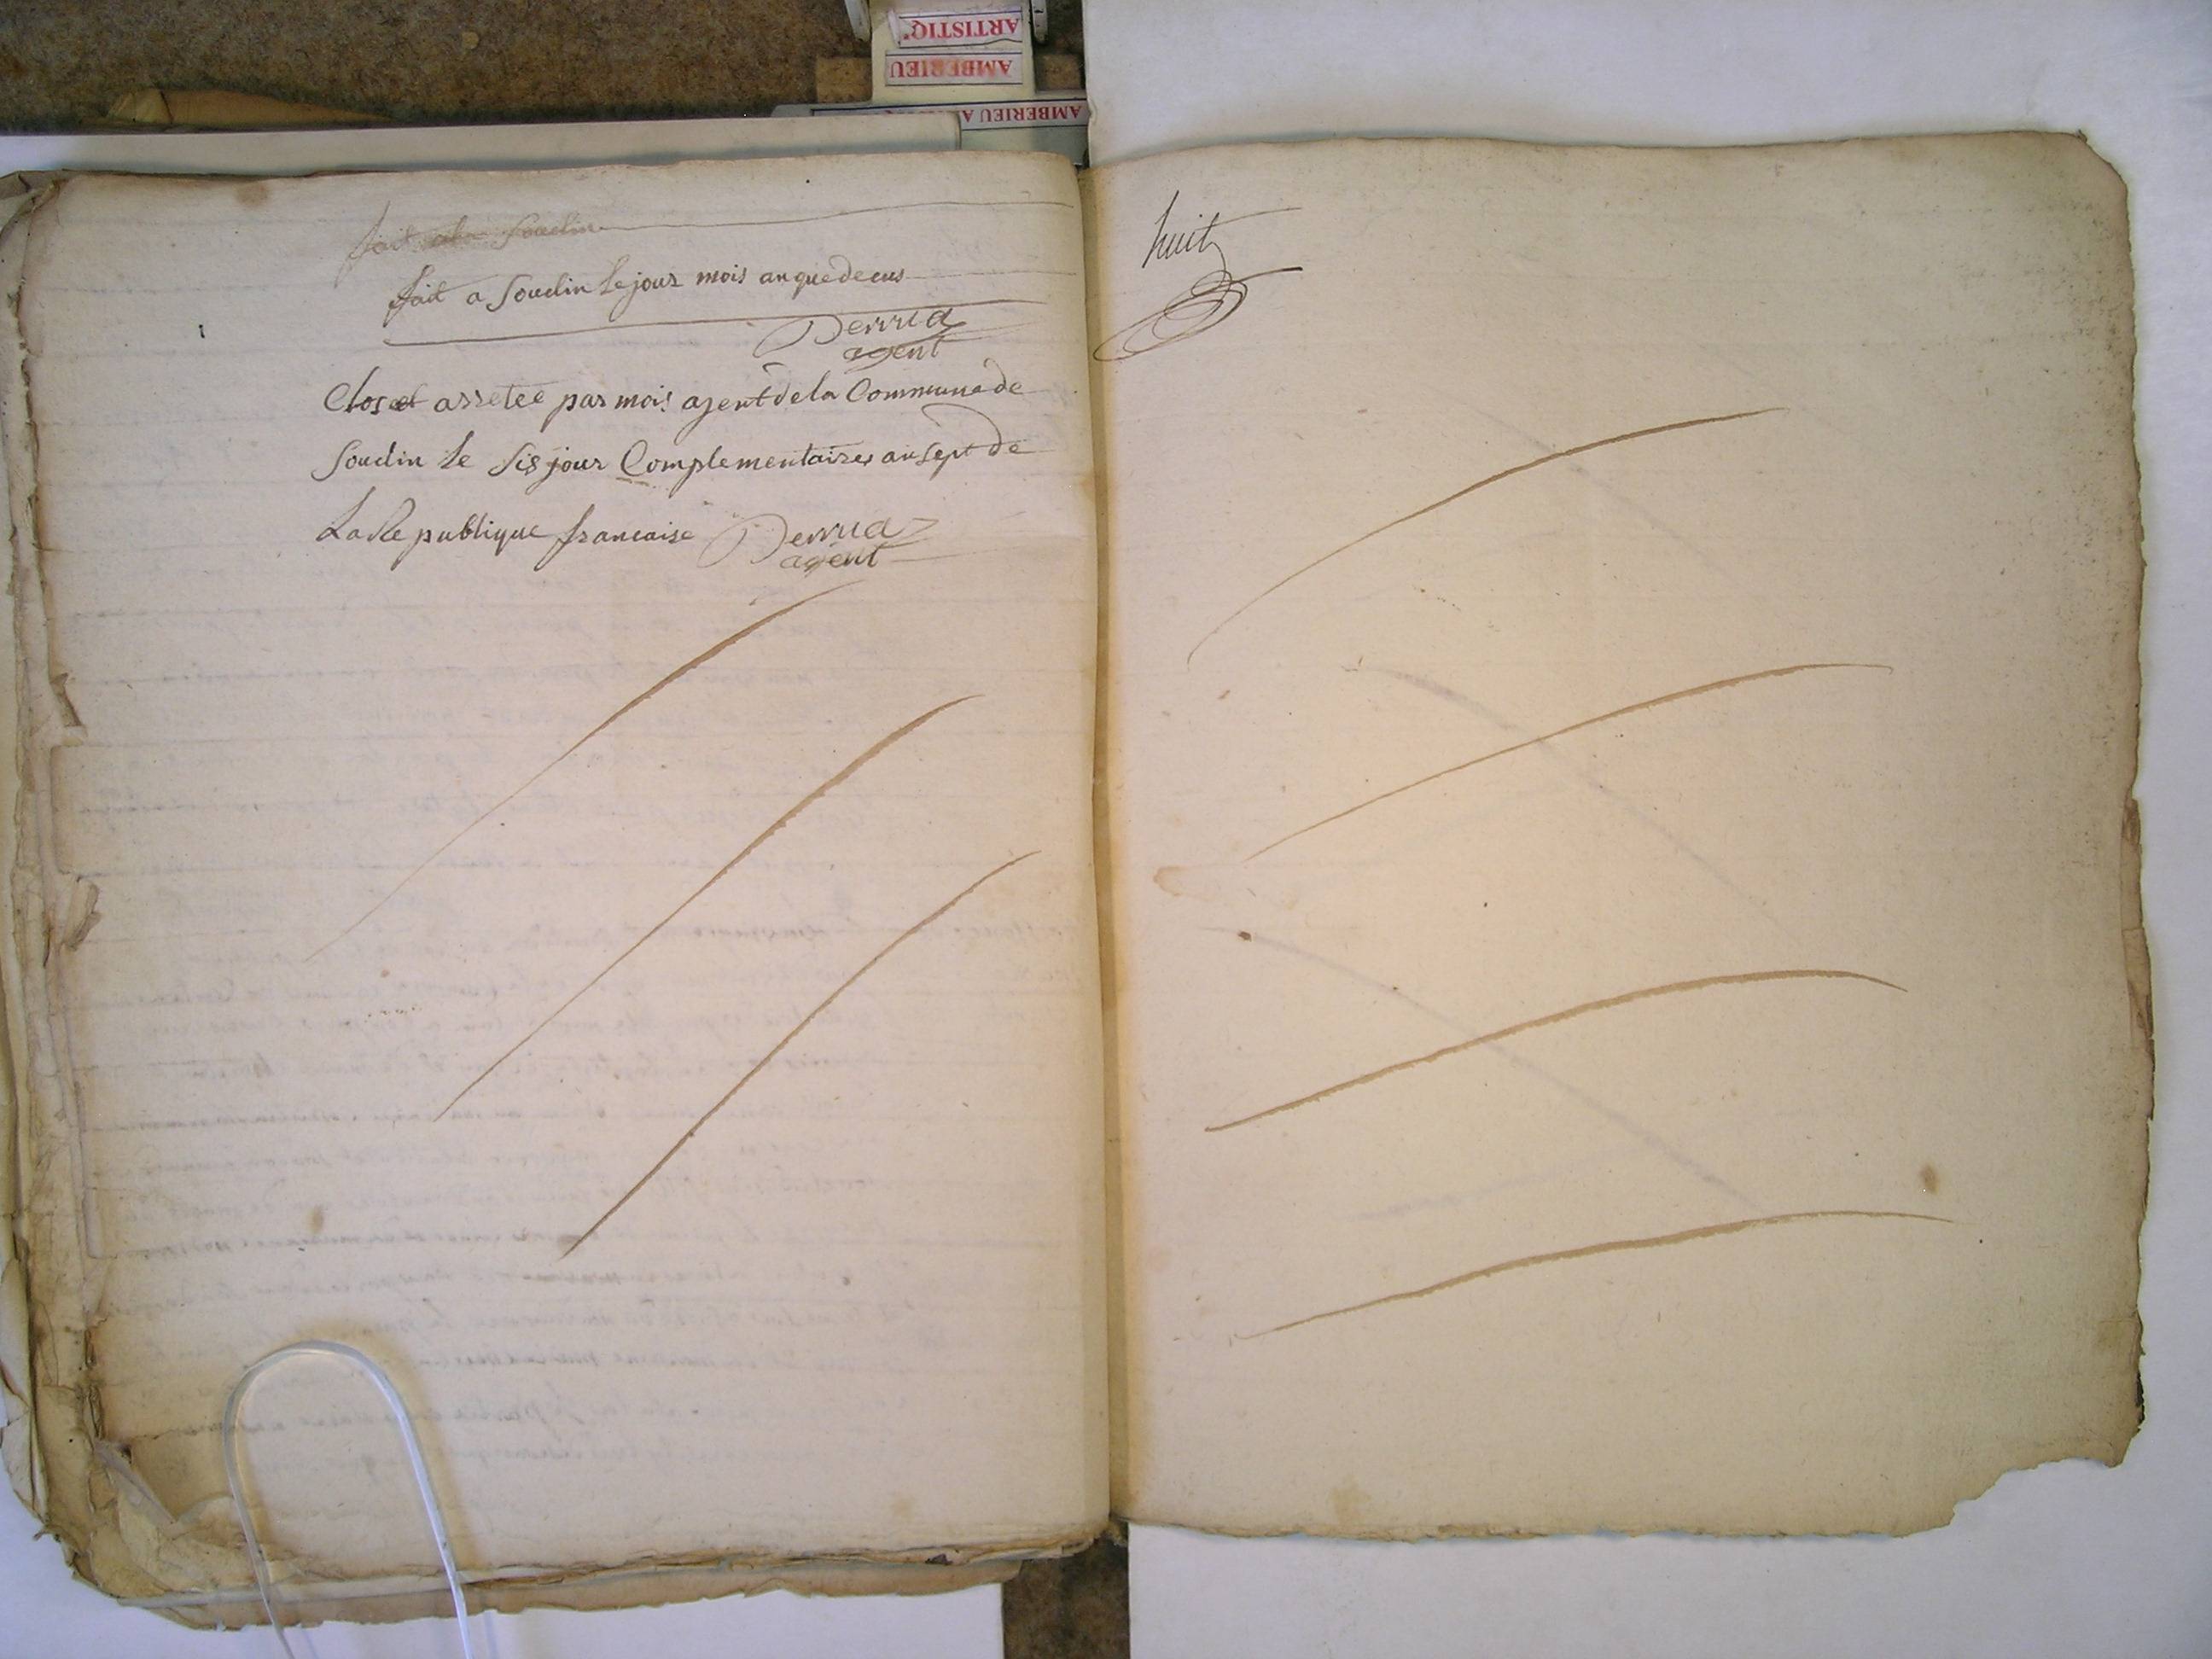 ARTISTIQ'
AMBERIEU
AMBERIEU A
fait a Soudin
fait a Soudin le jour mois an que decus
Perrud
agent
Clos et arretée par mois agent de la Commune de
Soudin le sis jour Complementaires an sept de
La Republique francaise Perrud
agent
huit